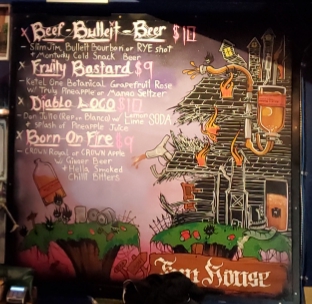 x Beef-Bulleit-Beer $10
- Slim Jim, Bulleit Bourbon or RYE shot
+ Montucky Cold Snack Beer
x Fruity Bastard $9
- Ketel One Botanical Grapefruit Rose
w/ Truly Pineapple or Mango Seltzer
x Diablo Loco $10
- Don Julio (Rep or Blanco) w/ Lemon Lime SODA
+ splash of Pineapple Juice
x Born On Fire $9
- CROWN Royal or CROWN Apple
w/ Ginger Beer
+ Hella Smoked
Chili Bitters
House